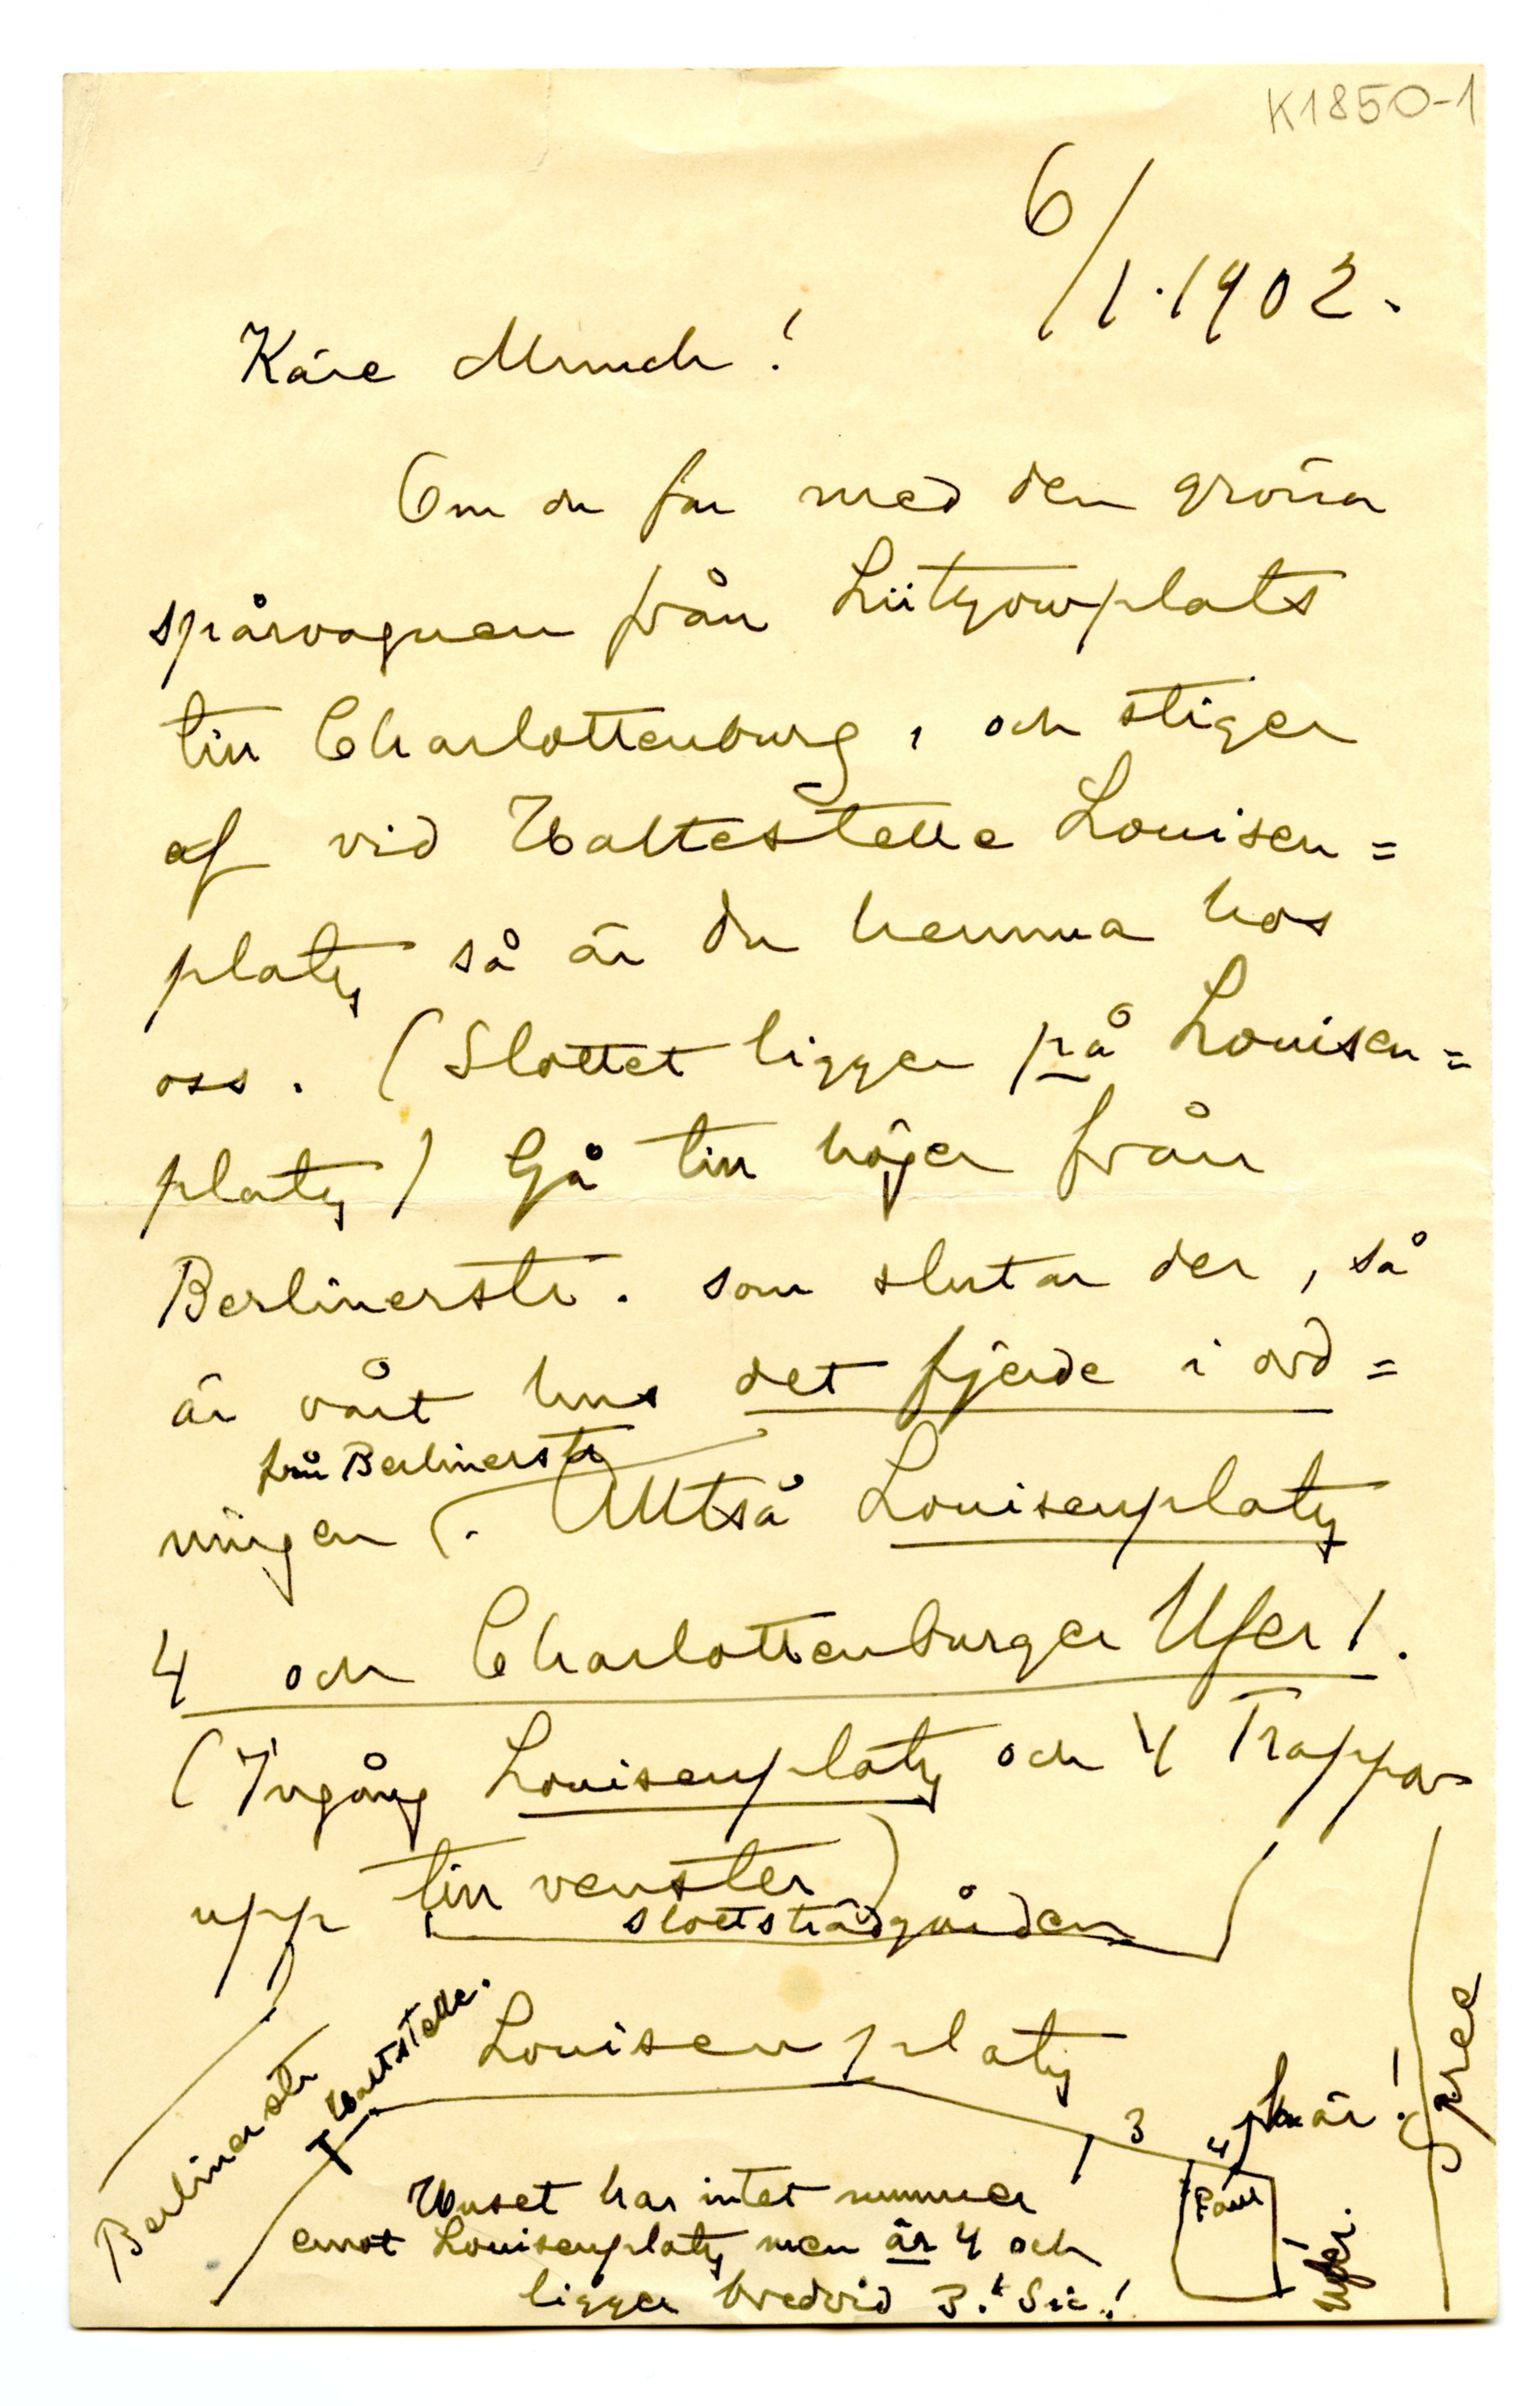 K1850-1
6/1.1902.
Käre Munch!
Om du far med den gröna
spårvagnen från Lützowplats
till Charlottenburg, och stiger
af vid Haltestelle Louisen=
platz så är du hemma hos
oss. (Slottet ligger på Louisen=
platz) Gå till höger från
Berlinerstr. som slutar der, så
är vårt hus det fjerde i ord=
från Berlinerstr
ningen. Alltså Louisenplatz
4 och Charlottenburger Ufer 1.
(Ingång Louisenplatz och 4 Trappor
upp till venster)
slottsträdgården
Berlinerstr
Haltstelle.
Louisenplatz
3
4
här!
Spree
Paul
1
Ufer.
Huset har intet nummer
emot Louisenplatz men är 4 och
ligger bredvid 3.!